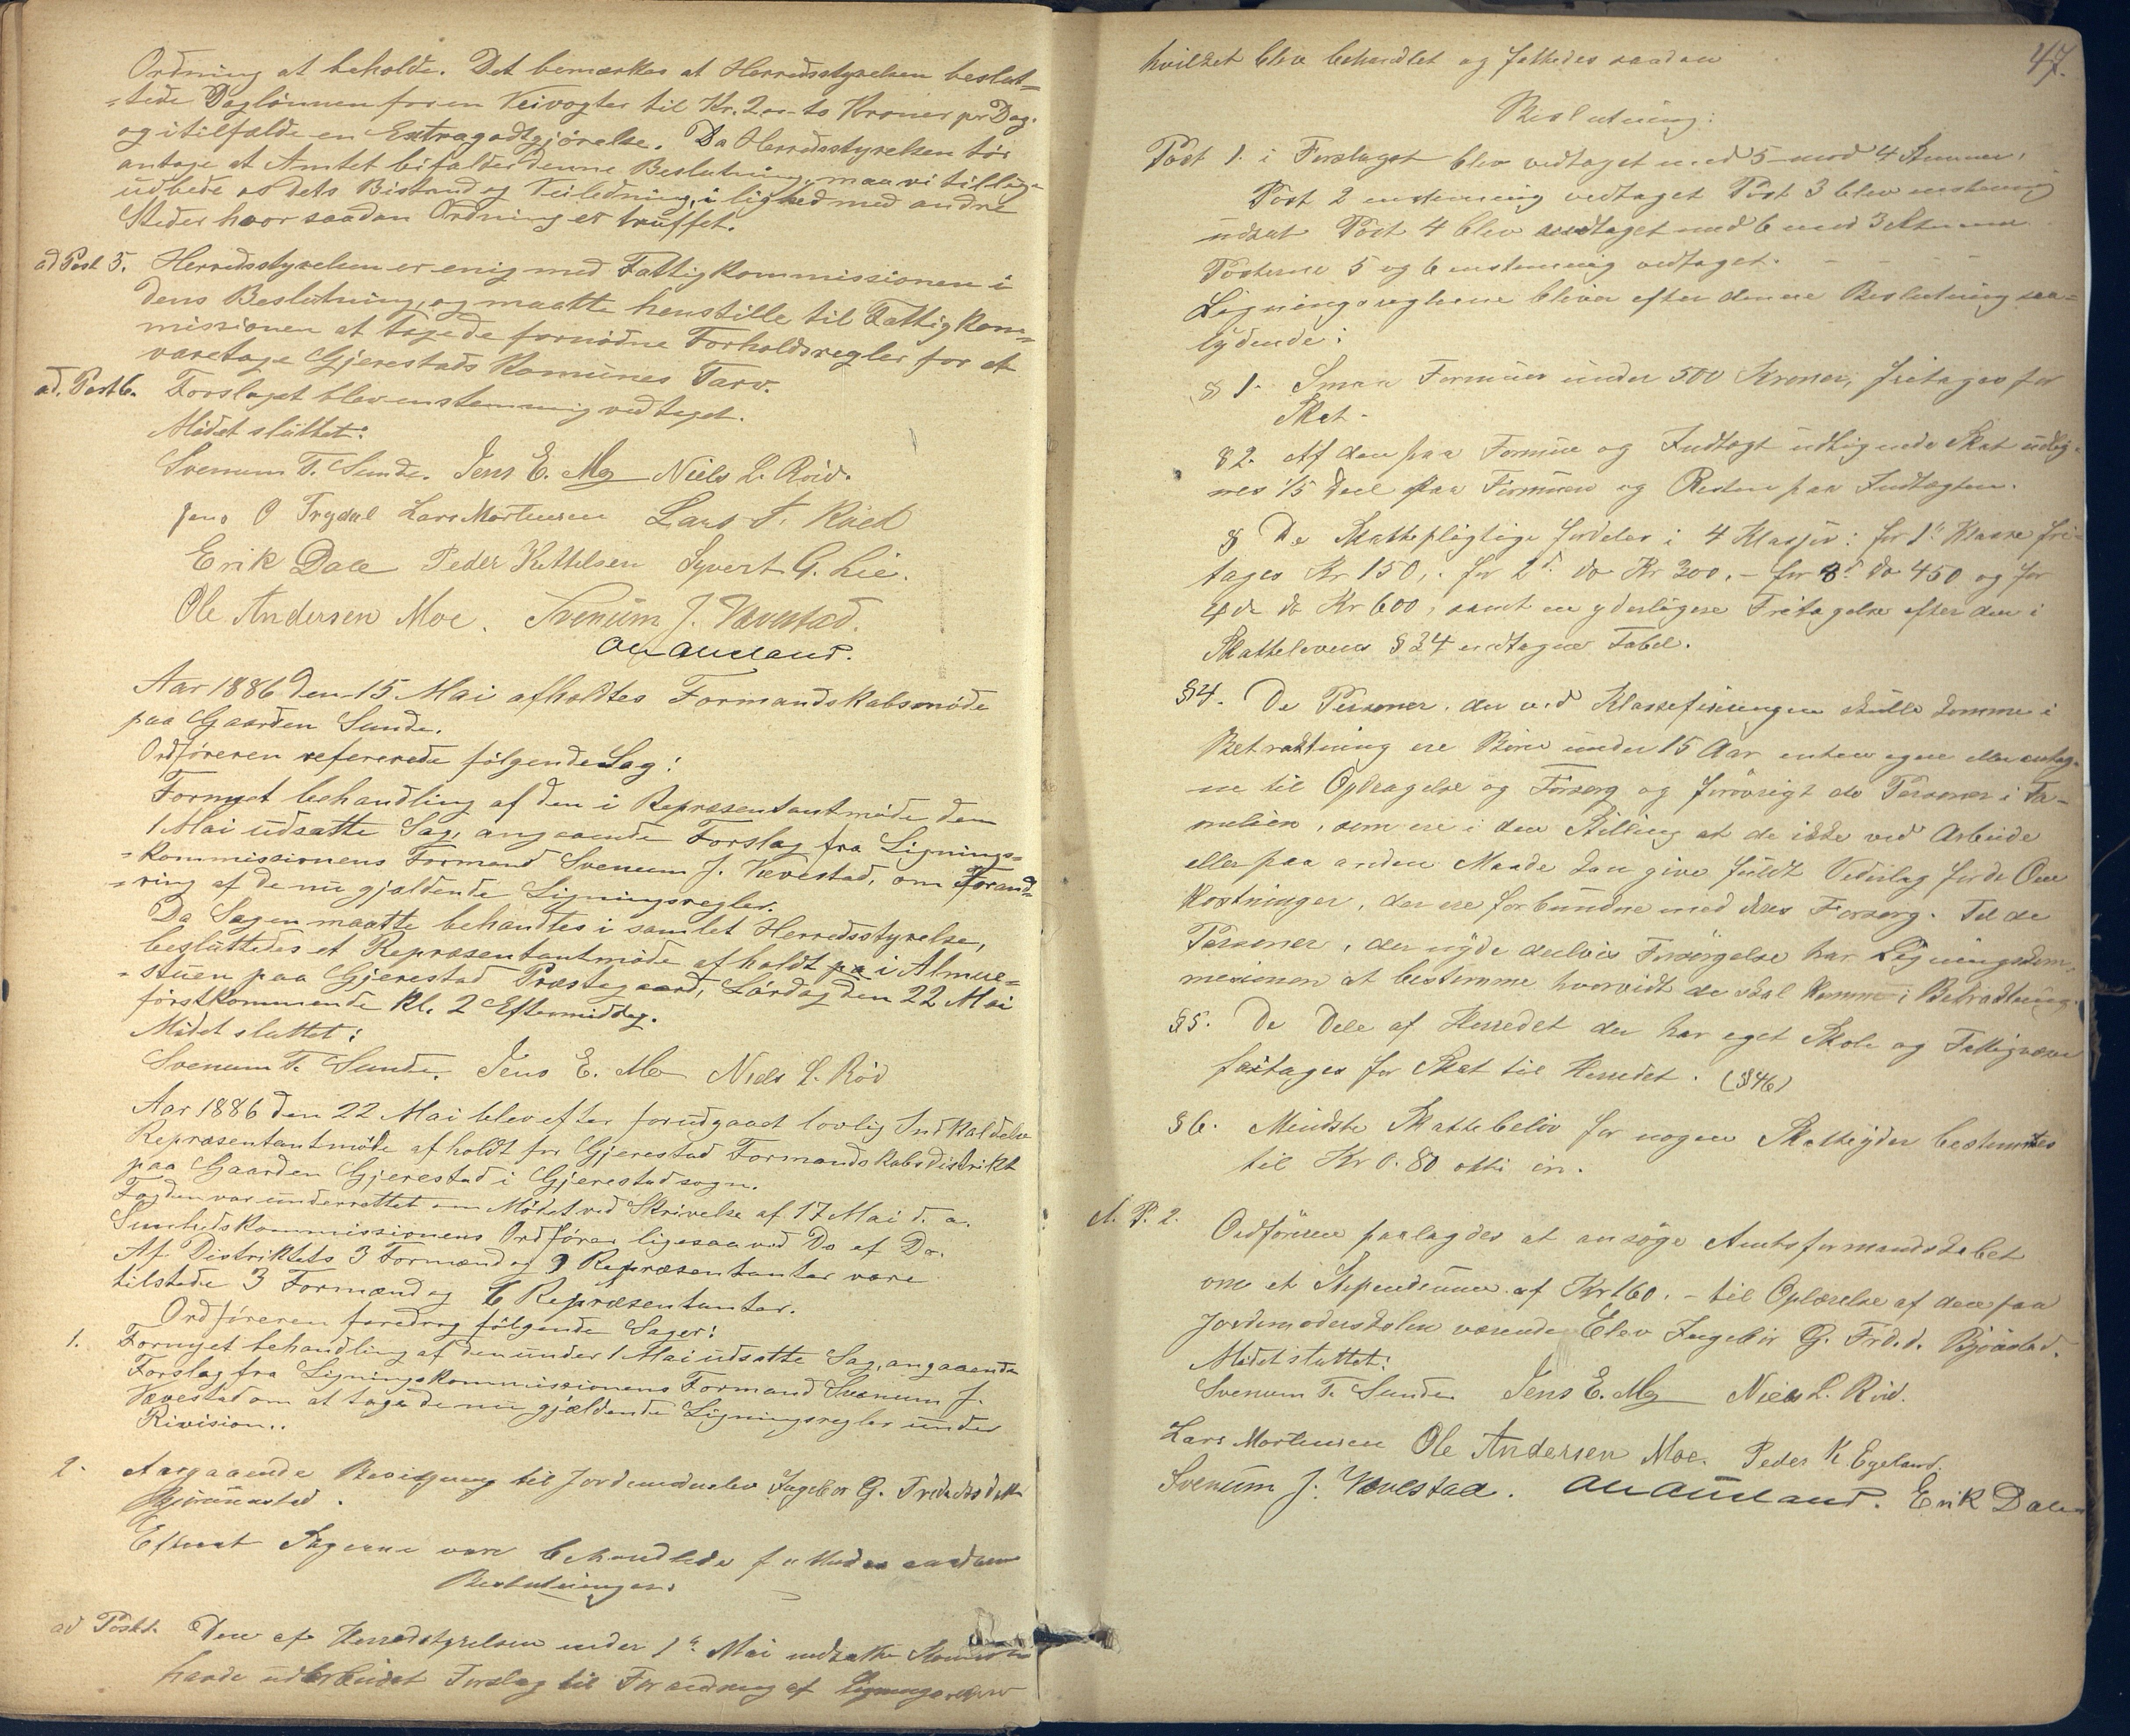 Ordning at beholde. Det bemærkes at Herredsstyrelsen beslut=
=tede Daglønnen for en Veivogter til Kr. 2.00 - to Kroner pr Dag.
og i tilfælde en Extragodtgjörelse. Da Herredsstyrelsen tör
antage at Amtet bifalder denne Beslutning, maa vi tillige
udbede os dets Bistand og Veiledning, i lighed med andre
Steder hvor saadan Ordning er truffet.
ad Post 5. Herredsstyrelsen er enig med Fattigkommissionen i
dens Beslutning, og maatte henstille til Fattigkom=
missionen at tage de fornödne Forholdsregler for at
varetage Gjerestads Komünes Tarv.
ad. Post 6. Forslaget blev enstemmig vedtaget.
Mödet slüttet:
Svenum T. Sunde. Jens E. Mo Niels L. Röd.
Jens O Trydal Lars Mortensen Lars T. Röed
Erik Dale Peder Kittelsen Syvert G. Lie.
Ole Andersen Moe. Svenüm J. Vævestad.
Aar 1886 den 15 Mai afholdtes Formandskabsmöde
paa Gaarden Sunde.
Ordföreren refererede fölgende Sag:
Fornyet behandling af den i Repræsentantmöde den
1 Mai udsatte Sag, angaaende Forslag fra Lignings=
=kommissionens Formand Svenum J. Vævestad, om Forand=
=ring af de nu gjældende Ligningsregler.
Da Sagen maatte behandles i samlet Herredsstyrelse,
besluttedes et Repræsentantmöde afholdt på i Almue=
=stuen paa Gjerestad Præstegaard, Lördag den 22 Mai
förstkommende Kl. 2 Eftermiddag.
Mödet sluttet:
Svenum T. Sunde. Jens E. Mo Niels L. Röd
Aar 1886 den 22 Mai blev efter forudgaaet lovlig Indkaldelse
Repræsentantmöde afholdt for Gjerestad Formandskabsdistrikt
paa Gaarden Gjerestad i Gjerestad sogn.
Fogden var underrettet om Mödet ved Skrivelse af 17 Mai d. a.
Sundhedskommissionens Ordförer ligesaa ved Do af Do.
Af Distriktets 3 Formænd og 9 Repræsentanter vare
tilstede 3 Formænd og 6 Repræsentanter.
Ordföreren foredrog fölgende Sager:
1. Fornyet behandling af den under 1 Mai udsatte Sag, angaaende
Forslag fra Ligningskommissionens Formand Svenum J.
Vævestad om at tage de nu gjældende Ligningsregler under
Rivision..
2. Angaaende Bevilgning til Jordemoderelev Ingebor G.
Efterat Sagerne vare behandlede fattedes saadanne
Beslutninger:
ad Post 1. Den af Herredstyrelsen under 1ste Mai nedsatte
havde udarbeidet Forslag til Forandring af
47.
hvilket blev behandlet og fattedes saadan
Beslutning:
Post 1. i Forslaget blev vedtaget med 5 mod 4 Stemmer,
Post 2 enstemmig vedtaget Post 3 blev enstemmig
udsat Post 4 blev vedtaget med 6 mod 3 Stemmer
Posterne 5 og 6 enstemmig vedtaget. - - - -
Ligningsreglerne bliver efter denne Beslutning saa=
lydende:
§ 1. Smaa Formüer ünder 500 Kroner, fritages for
Skat -
§ 2. Af den paa Formüe og Indtægt üdlignede Skat üdlig-
nes 1/5 Deel paa Formüen og Resten paa Indtægten.
§ De Skattepligtige fordeles i 4 Klasser: for 1ste Klasse fri-
tages Kr 150,. for 2d. do Kr 300. - for 3d do 450 og for
4de do Kr 600, samt en yderligere Fritagelse efter den i
Skattelovens § 24 indtagne Tabel.
§ 4. De Personer, der ved Klassefiseringen skülle komme i
Betraktning ere Börn ünder 15 Aar enten egne eller antag-
ne til Opdragelse og Forsörg og forövrigt de Personer i Fa-
melien, som ere i den Stilling at de ikke ved Arbeide
eller paa anden Maade kan give füldt Vederlag for de Om
kostninger, der ere forbündne med deres Forsörg. Til de
Personer, der nyde delvis Forsörgelse har Ligningskom-
mesionen at bestemme hvorvidt de skal komme i Betradtning.
§ 5. De Dele af Herredet der har eget Skole og Fattigvæsen
fritages for Skat til Herredet. (§ 46)
§ 6. Mindste Skattebelöv for nogen Skatteyder bestemtes
til Kr 0. 80 otti öre.
A. P. 2. Ordföreren paalagdes at ansöge Amtsformandskabet
om et Stipendium af Kr 160. - til Oplærelse af den paa
Jordemoderskolen værende Elev Ingebör G.
Mödet sluttet:
Svenum T. Sunde Jens E. Mo Niels L. Röd.
Lars Mortensen Ole Andersen Moe. Peder K. Egeland.
Svenüm J. Vævestad. Erik Dale